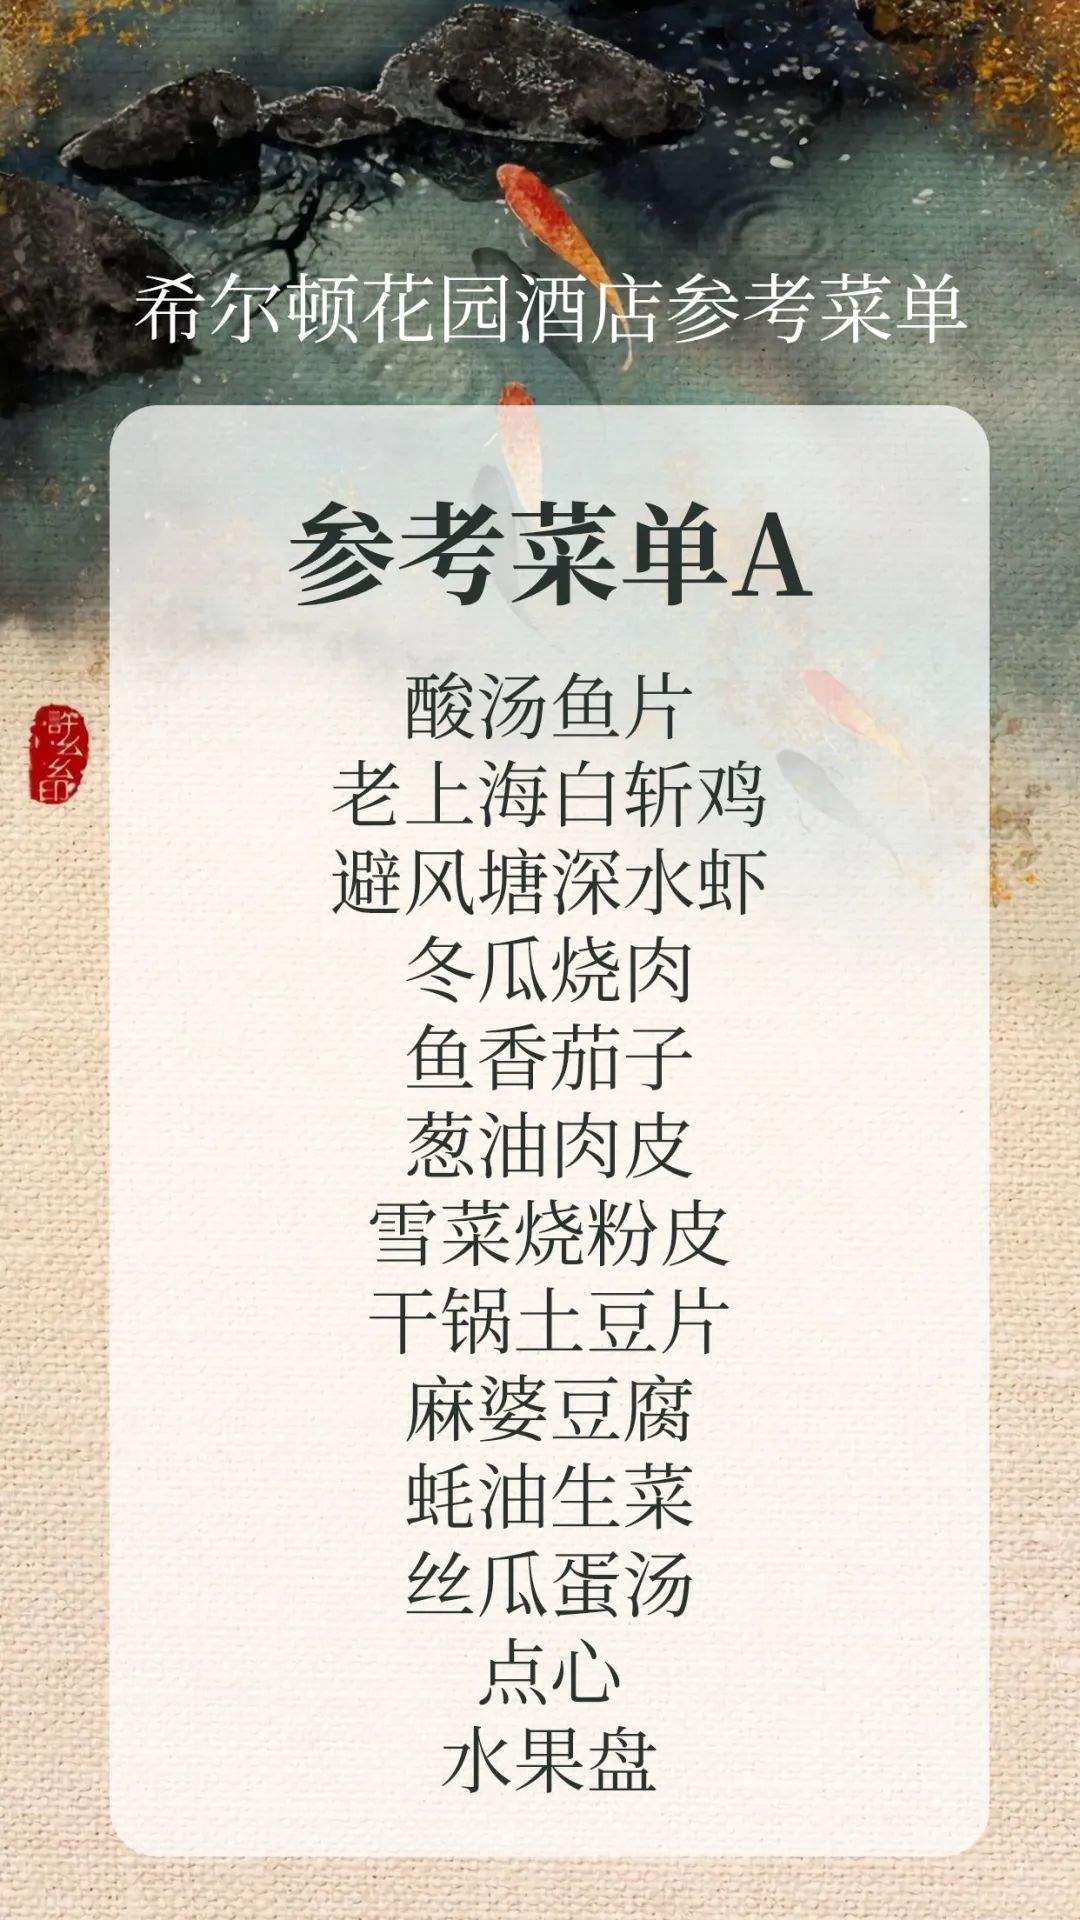 希尔顿花园酒店参考菜单
参考菜单A
酸汤鱼片
老上海白斩鸡
避风塘深水虾
冬瓜烧肉
鱼香茄子
葱油肉皮
雪菜烧粉皮
干锅土豆片
麻婆豆腐
蚝油生菜
丝瓜蛋汤
点心
水果盘